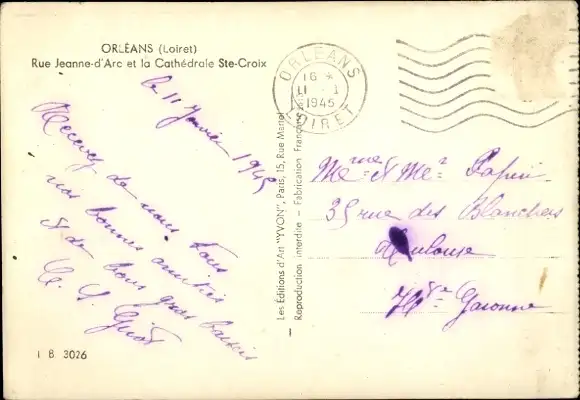 ORLÉANS (Loiret)
Rue Jeanne-d'Arc et la Cathédrale Ste-Croix
le 11 Janvier 1945
Recevez de nous tous
nos bonnes amitiés
et de bons gros baisers
I B 3026
Les Éditions d'Art "YVON", Paris, 15, Rue Martel
Reproduction interdite - Fabrication Française
ORLEANS
16 *
11 - 1
1945
LOIRET
Mme et Mr
35 rue des Blanchers
Toulouse
Hte Garonne